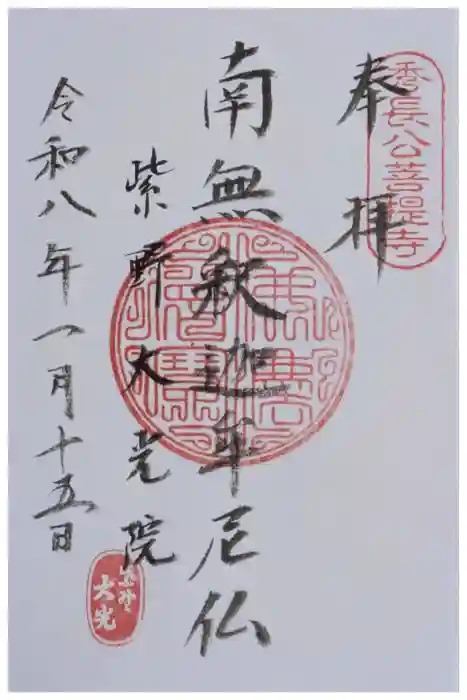 秀長公菩提寺
奉拝
南無釈迦牟尼仏
紫野大光院
令和八年一月十五日